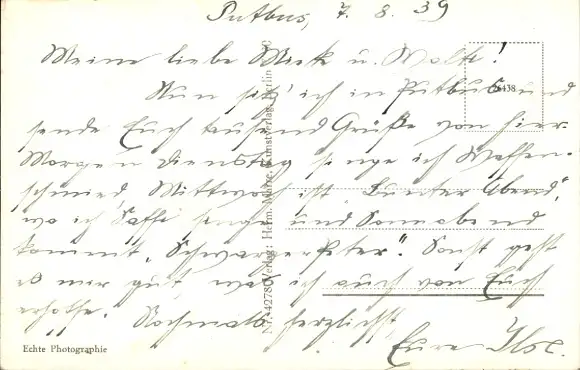 Putbus, 7. 8. 39
Meine liebe Mieck u. Molle!
Nun sitz' ich in Putbus und
sende Euch tausend Grüße von hier.
Morgen Dienstag singe ich Waffen-
schmied, Mittwoch ist "Bunter Abend",
wo ich Saffi singe und Sonnabend
kommt "Schwarzer Peter". Sonst geht
es mir gut, was ich auch von Euch
erhoffe. Nochmals herzlichst,
Eure Ilse.
Echte Photographie
Nr. 42780 Verlag: Herm. Kunstverlag, Berlin